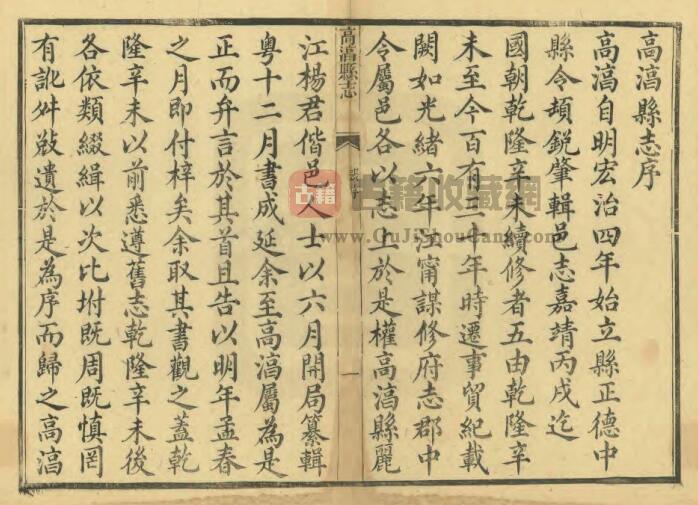 高淳縣志序
高淳自明宏治四年始立縣正德中
縣令頓銳肇輯邑志嘉靖丙戌迄
國朝乾隆辛未續修者五由乾隆辛
未至今百有三十年時遷事貿紀載
闕如光緒六年江甯謀修府志郡中
令屬邑各以志上於是權高淳縣麗
高淳縣志
一
江楊君偕邑人士以六月開局纂輯
粵十二月書成延余至高淳屬為是
正而弁言於其首且告以明年孟春
之月即付梓矣余取其書觀之蓋乾
隆辛未以前悉遵舊志乾隆辛未後
各依類綴緝以次比坿既周既慎罔
有訛舛敚遺於是為序而歸之高淳
古籍
古籍收藏網
www.GuJiShouCang.com